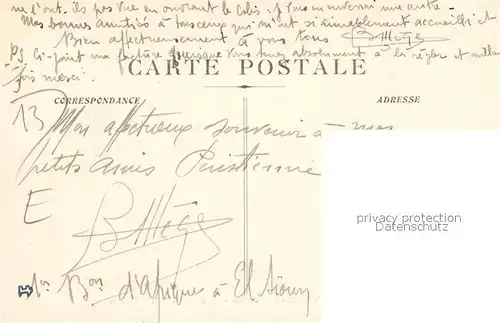 ne l'ont-ils pas vue en ouvrant le colis. je vous en enverrai une autre.
Mes bonnes amitiés à tous ceux qui m'ont si aimablement accueilli et
Bien affectueusement à vous tous
PS Ci-joint ma facture puisque vous tenez absolument à la régler et mille
fois merci.
CARTE POSTALE
CORRESPONDANCE
ADRESSE
13
Mon affectueux souvenir à mes
petits amis
privacy protection
Datenschutz
E
1er Bon d'Afrique à El Aïoun